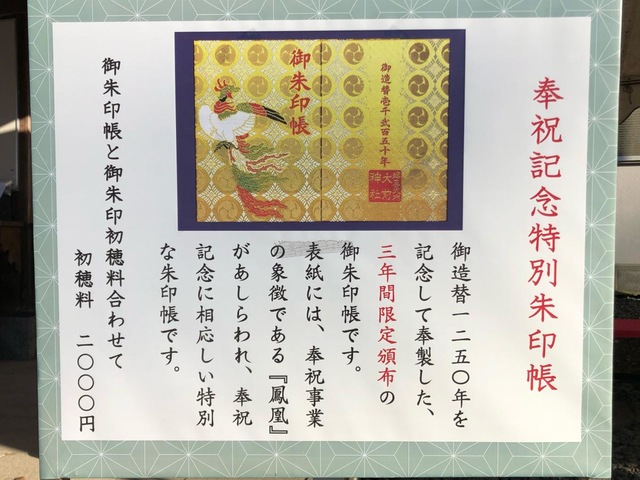 奉祝記念特別朱印帳
御朱印帳
御造替壱千弐百五十年
大前
神社
御造替一二五〇年を
記念して奉製した、
三年間限定頒布の
御朱印帳です。
表紙には、奉祝事業
の象徴である『鳳凰』
があしらわれ、奉祝
記念に相応しい特別
な朱印帳です。
御朱印帳と御朱印初穂料合わせて
初穂料 二〇〇〇円